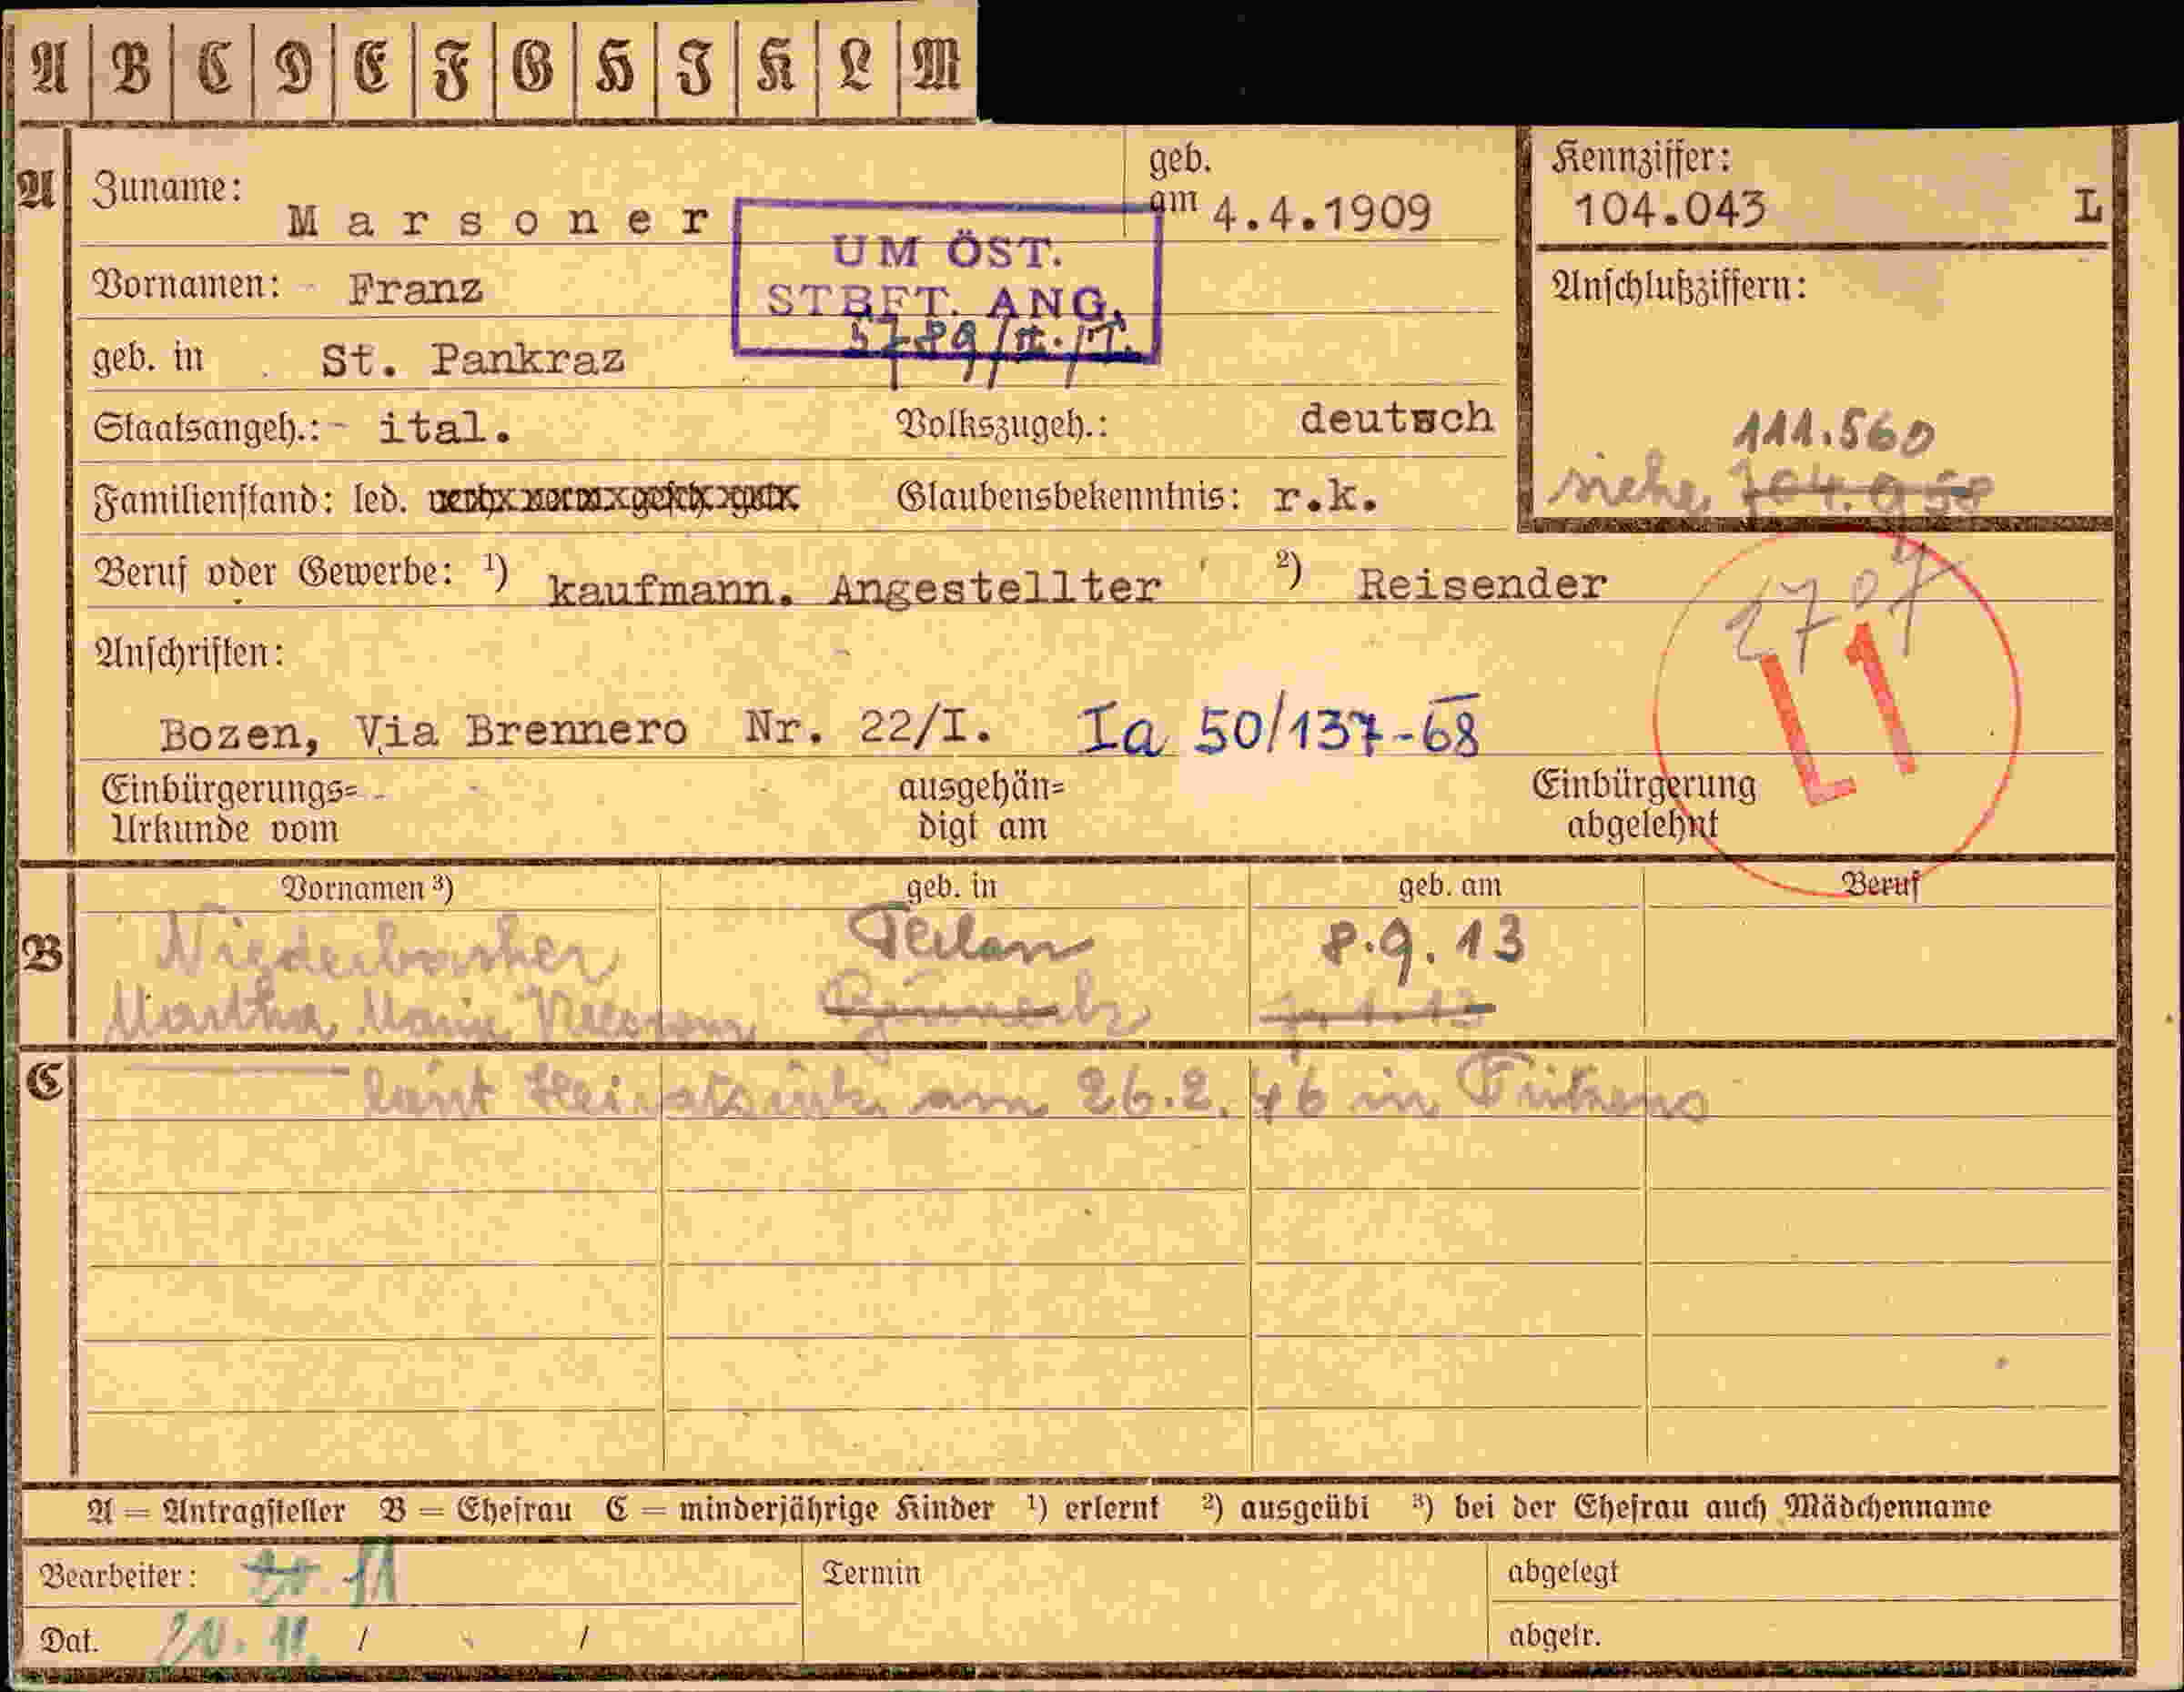 A B C D E F G H I K L M
A Zuname: Marsoner geb. am 4.4.1909 Kennziffer: 104.043 L
UM ÖST.
STBFT. ANG.
5789/II./T.
Vornamen: Franz Anschlußziffern:
geb. in St. Pankraz
Staatsangeh.: ital. Volkszugeh.: deutsch 111.560
Familienstand: led. verh. verw. gesch. getr. Glaubensbekenntnis: r.k. siehe 104.958
Beruf oder Gewerbe: 1) kaufmann. Angestellter 2) Reisender
2707
L1
Anschriften:
Bozen, Via Brennero Nr. 22/I. Ia 50/137-68
Einbürgerungs= Urkunde vom ausgehän= digt am Einbürgerung abgelehnt
Vornamen 3) geb. in geb. am Beruf
B Niederbacher 8.9.13
Martha Maria 7.1.13
C laut am 26.2.46 in Fritzens
A = Antragsteller B = Ehefrau C = minderjährige Kinder 1) erlernt 2) ausgeübt 3) bei der Ehefrau auch Mädchenname
Bearbeiter: Termin abgelegt
Dat. 20. 11. / / abgetr.